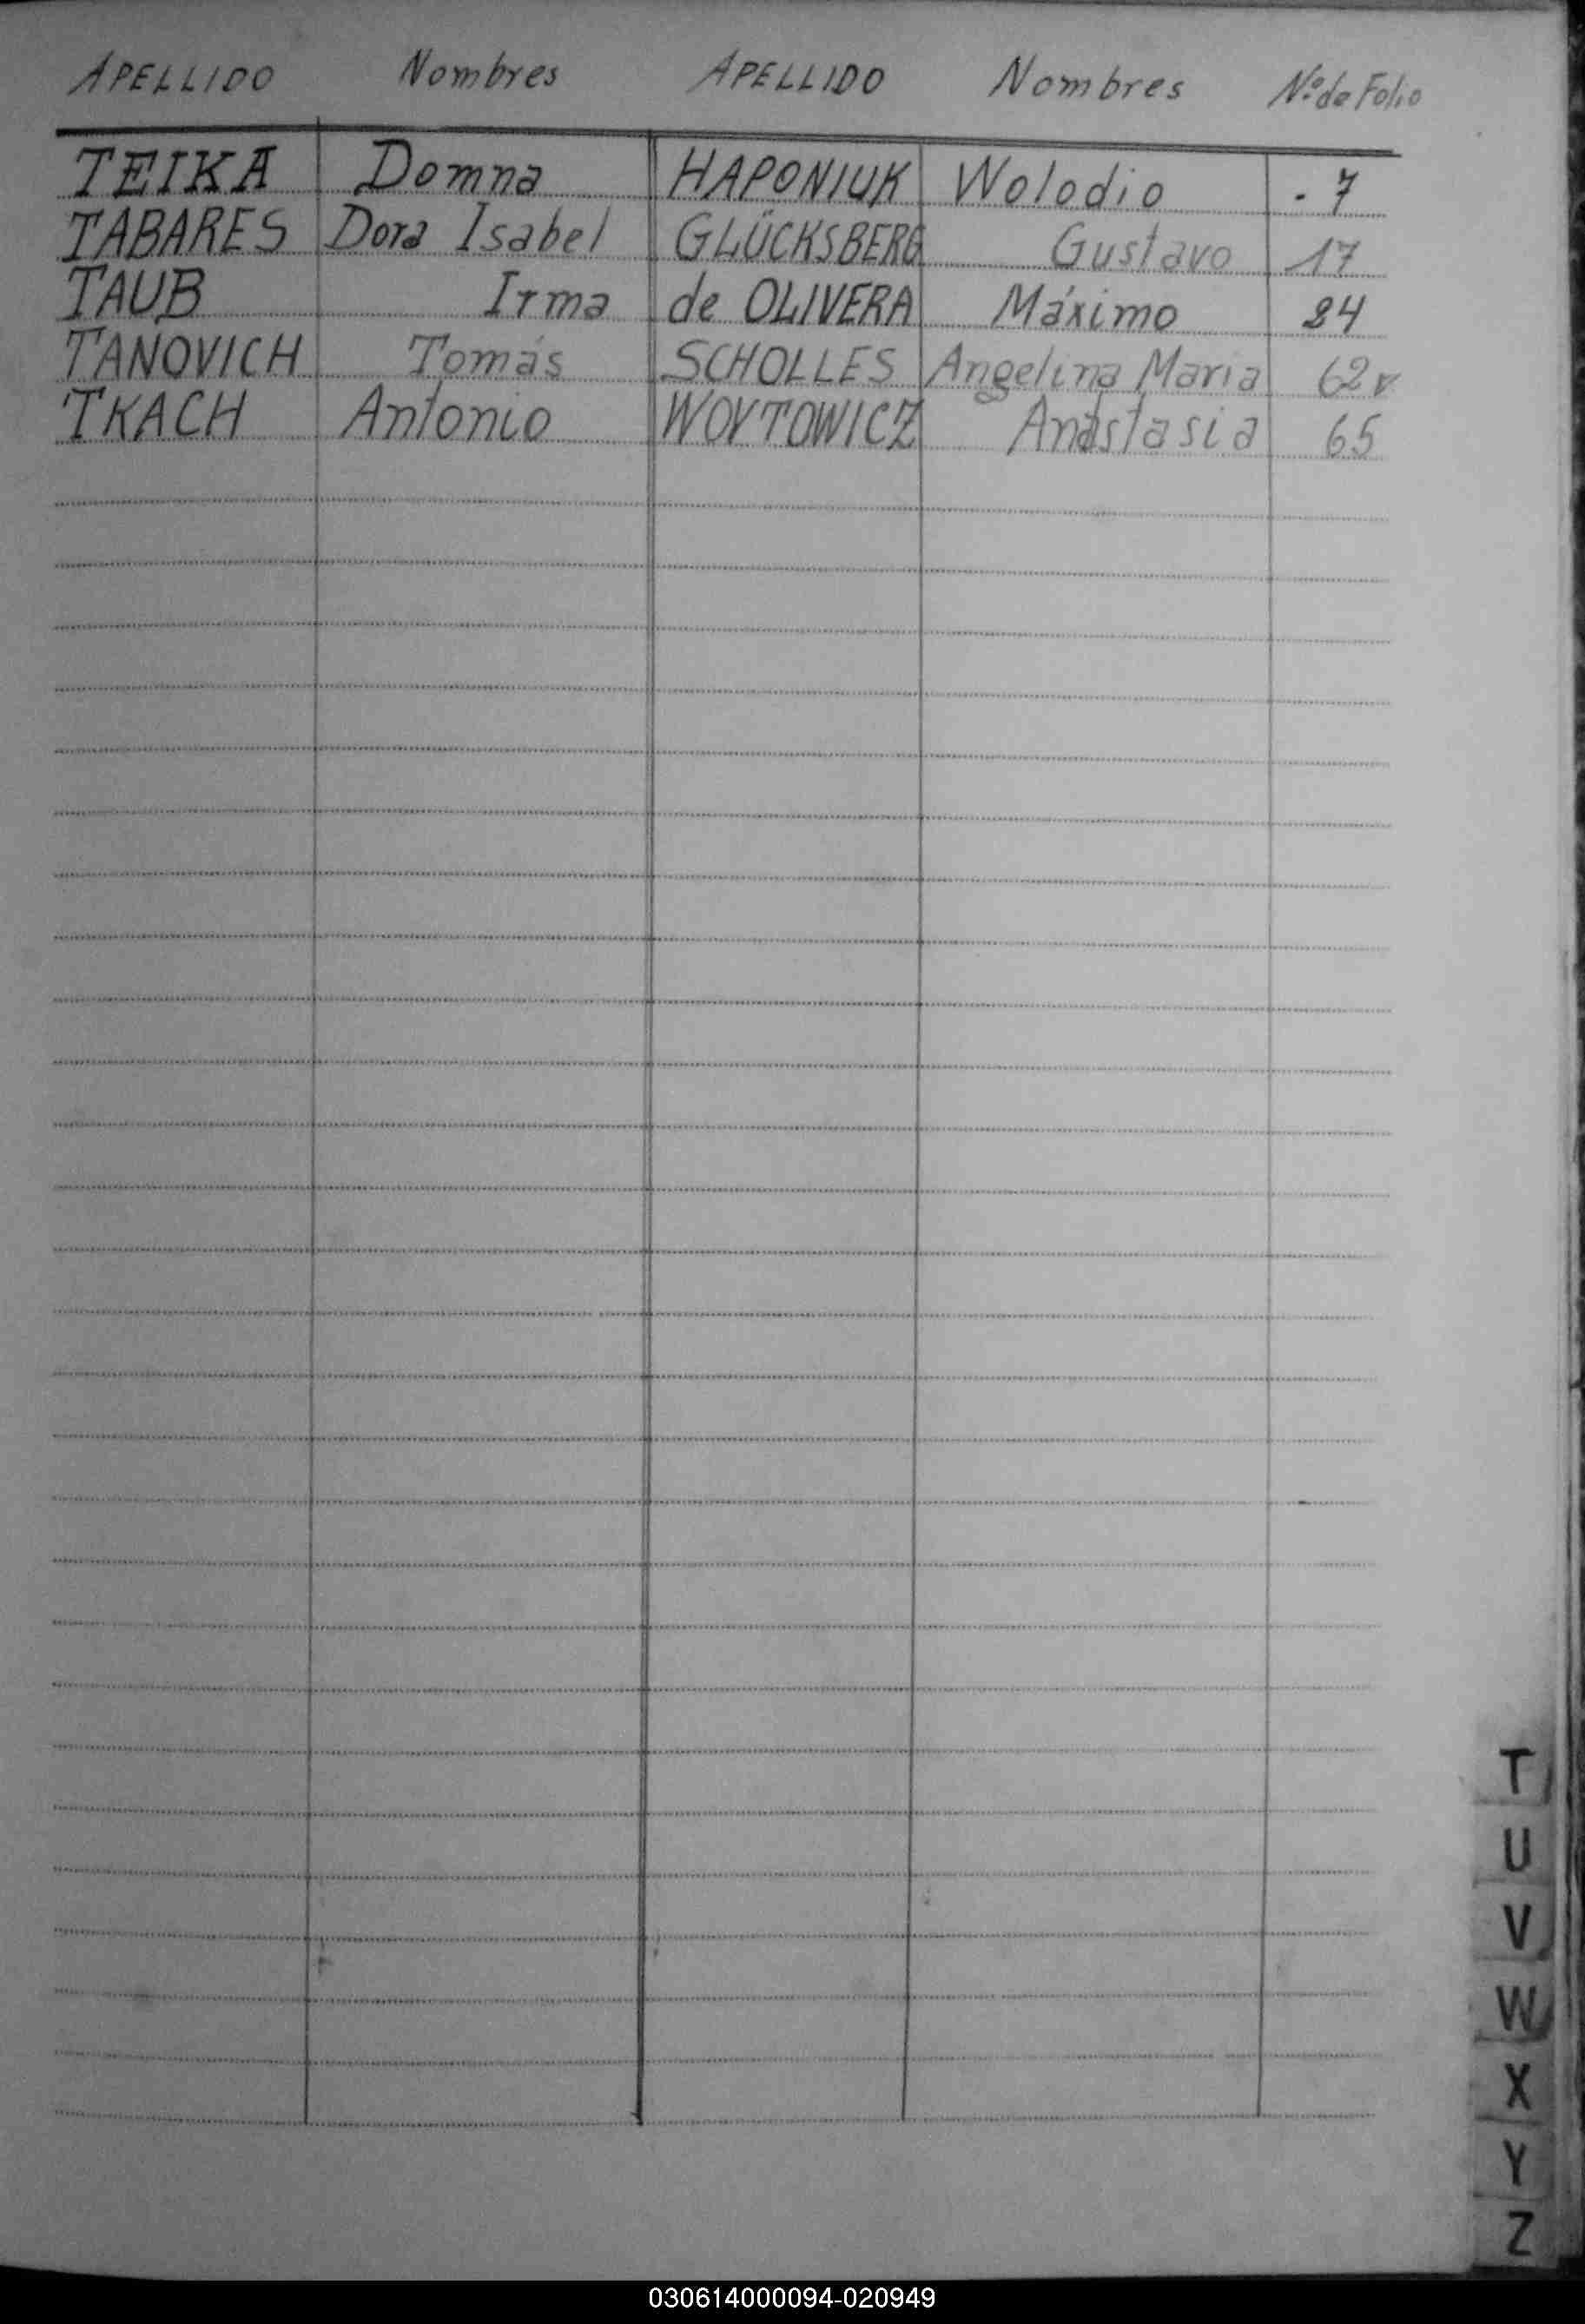 APELLIDO Nombres APELLIDO Nombres Nº de Folio
TEIKA Domna HAPONIUK Wolodio - 7
TABARES Dora Isabel GLÜCKSBERG Gustavo 17
TAUB Irma de OLIVERA Máximo 84
TANOVICH Tomás SCHOLLES Angelina Maria 62v
TKACH Antonio WOYTOWICZ Anastasia 65
T
U
V
W
X
Y
Z
030614000094-020949